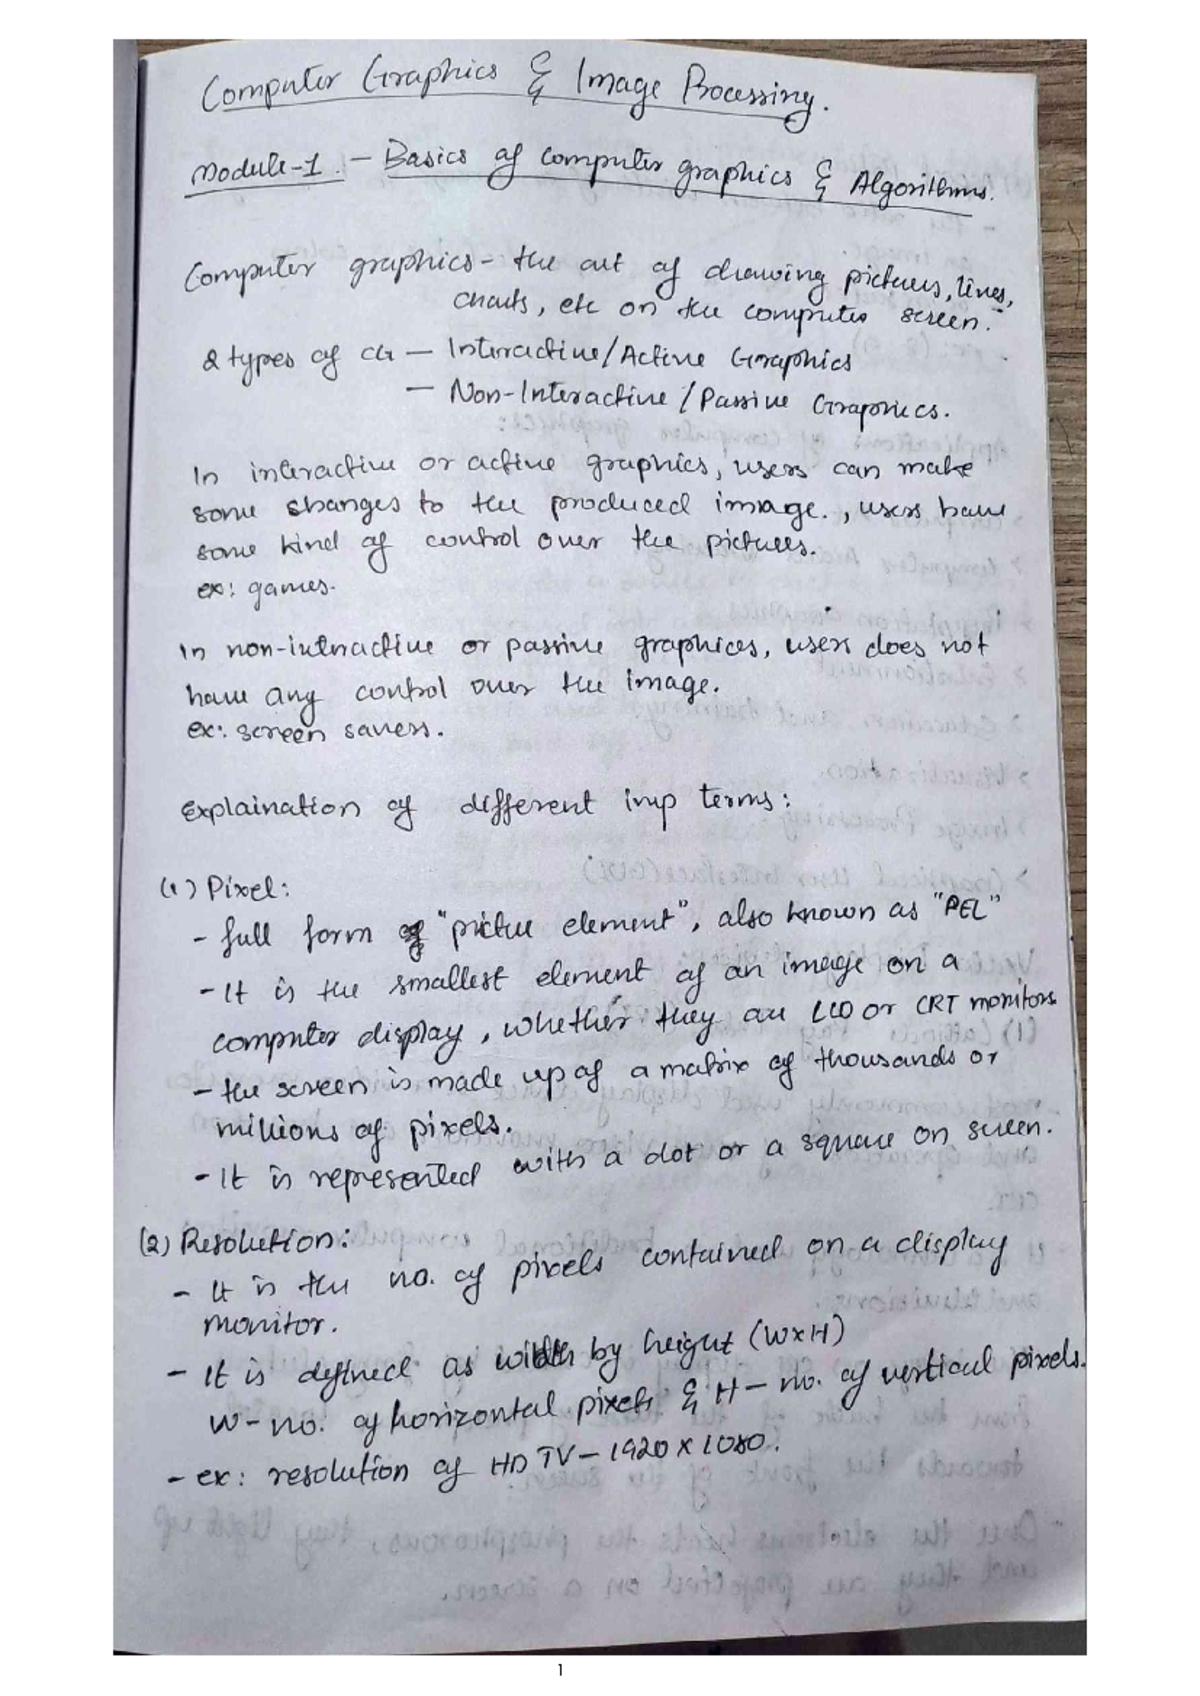 Computer Graphics & Image Processing.
Module-1. - Basics of Computer graphics & Algorithms.
Computer graphics - the art of drawing pictures, lines,
charts, etc on the computer screen.
2 types of CG - Interactive/Active Graphics
- Non-Interactive / Passive Graphics.
In interactive or active graphics, users can make
some changes to the produced image., users have
some kind of control over the pictures.
ex: games.
In non-interactive or passive graphices, users does not
have any control over the image.
ex: screen savers.
Explaination of different imp terms:
(1) Pixel:
- full form of "pictue element", also known as "PEL"
- It is the smallest element of an image on a
computer display, whether they are LCD or CRT monitors
- the screen is made up of a matrix of thousands or
millions of pixels.
- It is represented with a dot or a square on screen.
(2) Resolution:
- It is the no. of pixels contained on a display
monitor.
- It is defined as width by height (W×H)
W - no. of horizontal pixels & H - no. of vertical pixels.
- ex: resolution of HD TV - 1920 × 1080.
1